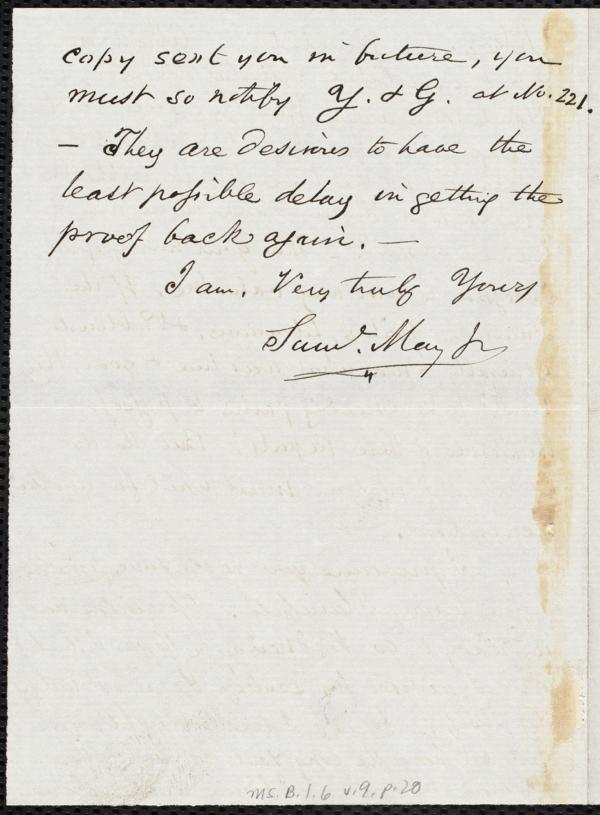 copy sent you in future, you
must so notify Y. & G. at No. 221.
– They are desirous to have the
least possible delay in getting the
proof back again. –
I am. Very truly Yours
Saml. May Jr
Ms. B. 1. 6 v. 9, p. 20